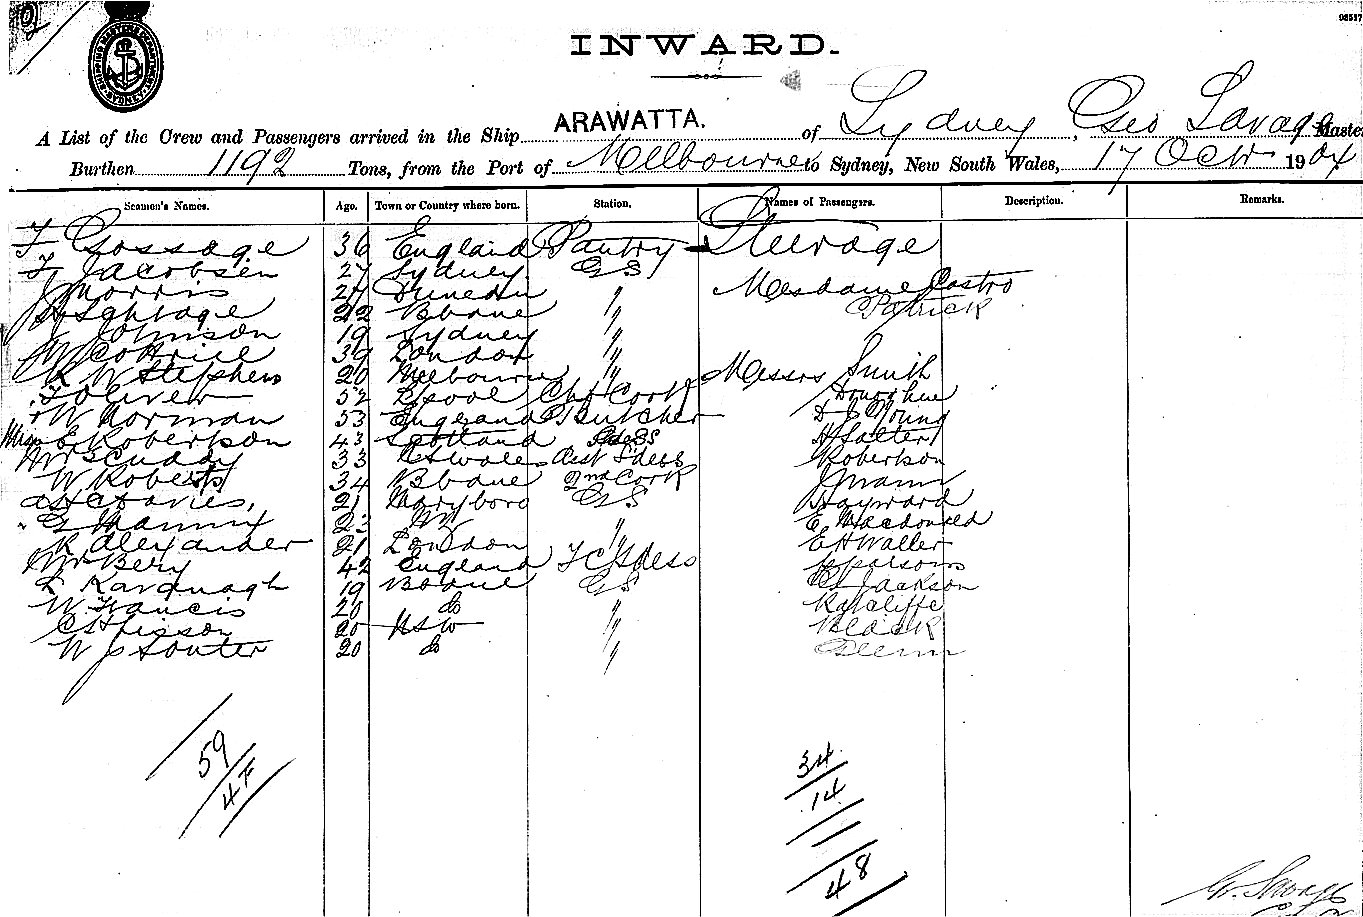 98517
INWARD.
A List of the Crew and Passengers arrived in the Ship ARAWATTA. of Sydney, Geo Savage Master
Burthen 1192 Tons, from the Port of Melbourne to Sydney, New South Wales, 17 Octr 1904
Seamen's Names. Age. Town or Country where born. Station. Names of Passengers. Description. Remarks.
F Gossage 36 England Pantry Steerage
Jacobsen 27 Sydney GS
J Morris 27 Dunedin " Mesdame Castro
22 Bbane " Patrick
Johnson 19 Sydney "
39 London "
W Stephens 20 Melbourne " Messrs Smith
Oliver 52 Lpool Chf Cook Donoghue
W Norman 53 England Butcher D J Young
E Robertson 43 Scotland H Salter
Mrs Scuddy 33 Robertson
W Roberts 34 Bbane 2nd Cook J Mann
Davies, 21 Maryboro GS Hayward
G Mannix 23 NZ " E Macdonald
R Alexander 21 London " E H Waller
Mrs Bery 42 England Parsons
Kavanagh 19 Bbane GS Jackson
W Francis 20 do " Ratcliffe
20 NSW " Black
W J Souter 20 do " Glenn
59
47
34
14
48
G. Savage